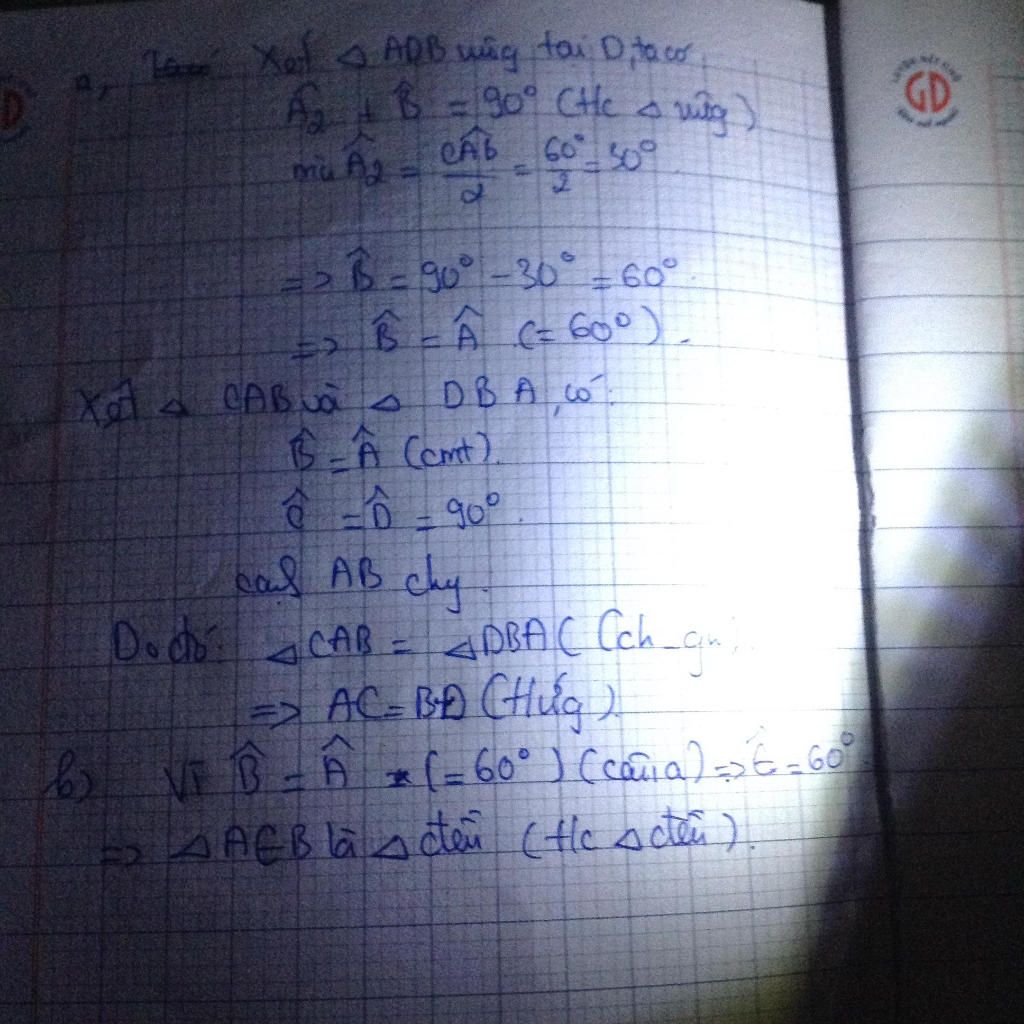 a, Xét △ ADB vuông tại D, ta có
Â₂ + B̂ = 90° (t/c △ vuông)
mà Â₂ = CÂB/2 = 60°/2 = 30°
=> B̂ = 90° - 30° = 60°
=> B̂ = Â (= 60°).
Xét △ CAB và △ DBA, có:
B̂ = Â (cmt).
Ĉ = D̂ = 90°.
cạnh AB chg.
Do đó: △CAB = △DBA ( (ch_gn)
=> AC = BD (t/ứg).
b) Vì B̂ = Â (= 60°) (câu a) => Ê = 60°
=> △ AEB là △ đều (t/c △ đều).
GD